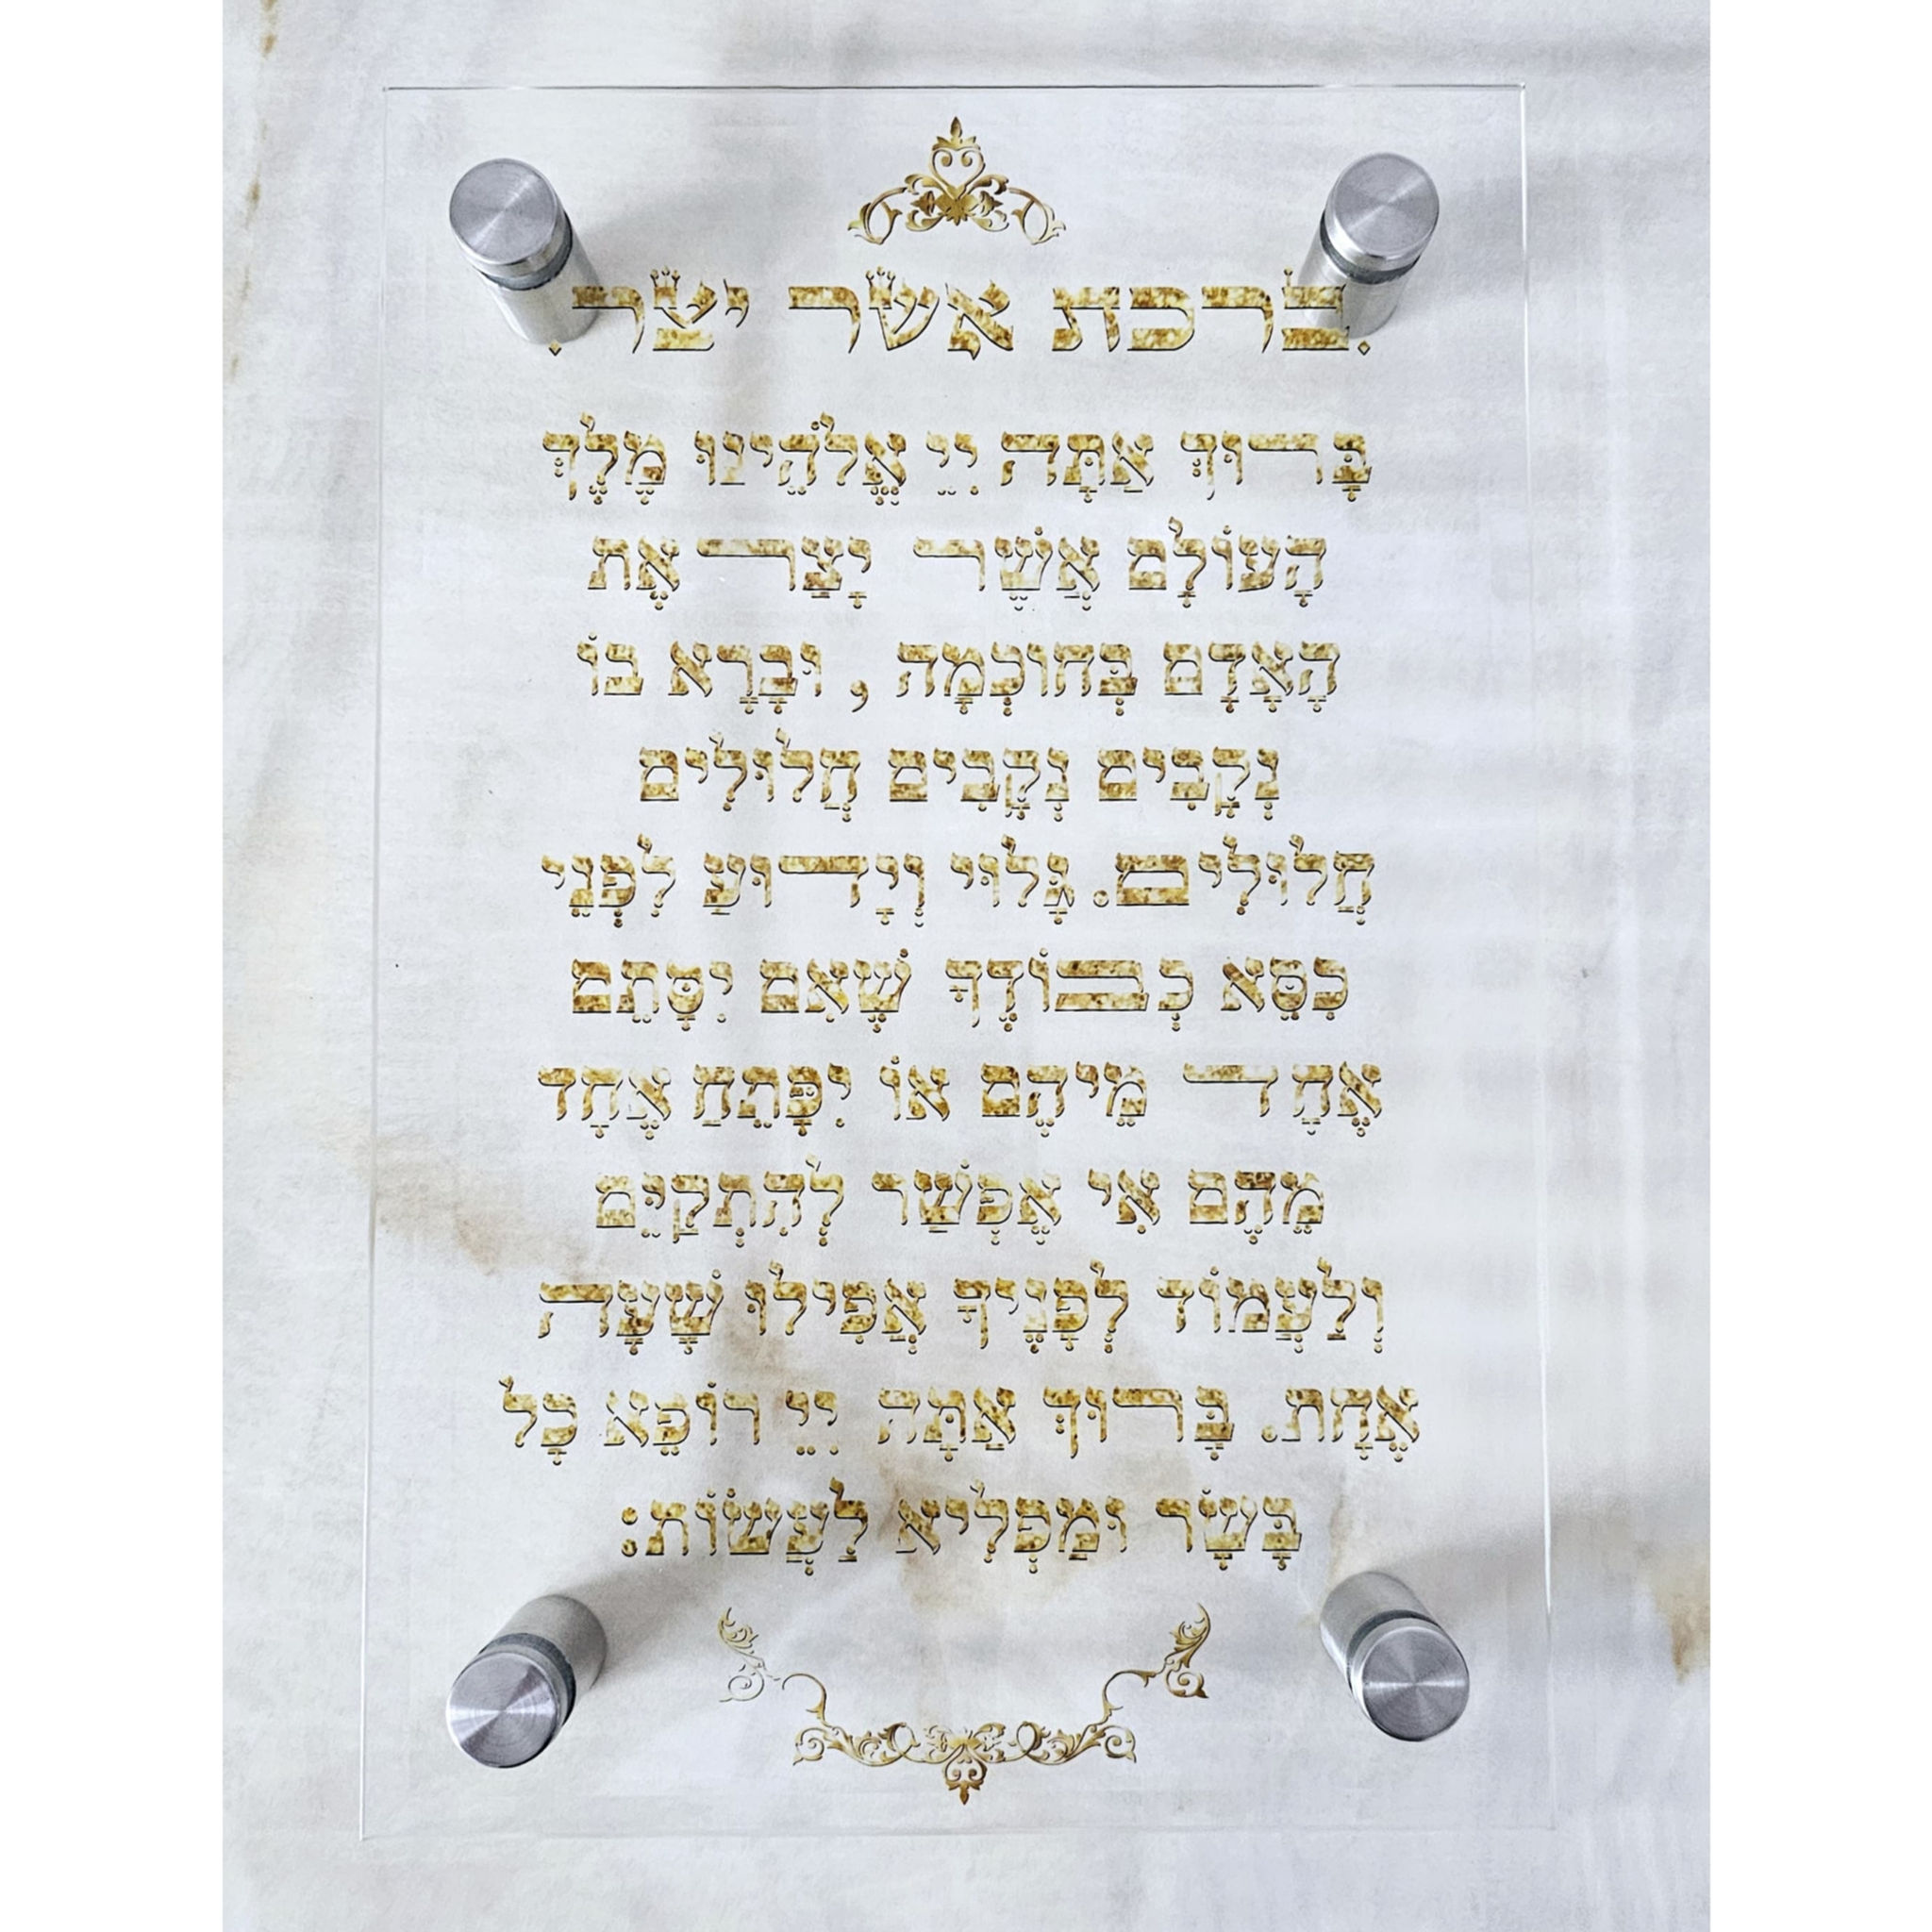 ברכת אשר יצר
בָּרוּךְ אַתָּה יְיֵ אֱלֹהֵינוּ מֶלֶךְ
הָעוֹלָם אֲשֶׁר יָצַר אֶת
הָאָדָם בְּחוֹכְמָה , וּבָרָא בוֹ
נְקָבִים נְקָבִים חֲלוּלִים
חֲלוּלִים. גָּלוּי וְיָדוּעַ לִפְנֵי
כִסֵּא כְבוֹדֶךָ שֶׁאִם יִסָּתֵם
אֶחָד מֵיהֶם אוֹ יִפָּתֵחַ אֶחָד
מֵהֶם אִי אֶפְשַׁר לְהִתְקַיֵּם
וְלַעֲמוֹד לְפָנֶיךָ אֲפִילוּ שָׁעָה
אֶחָת. בָּרוּךְ אַתָּה יְיֵ רוֹפֵא כָל
בָּשָׂר וּמַפְלִיא לַעֲשׂוֹת: